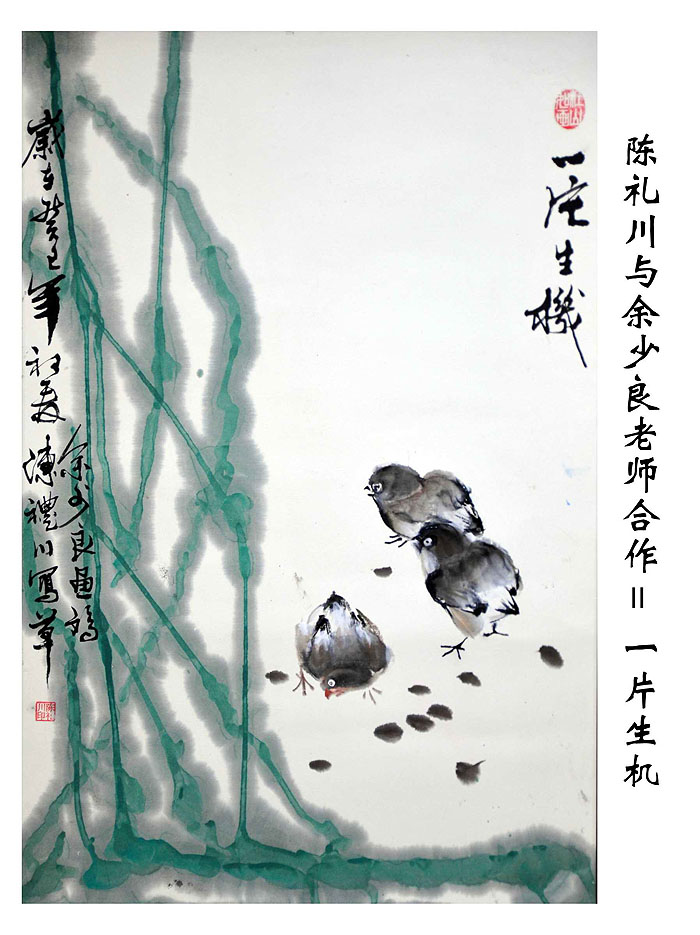 陈礼川与余少良老师合作= 一片生机
一片生機
余少良畫鷄
歲在癸巳年初夏陳禮川寫草